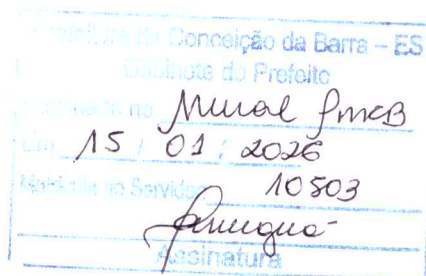 Prefeitura de Conceição da Barra – ES
Gabinete do Prefeito
Publicado no Mural PMCB
Em 15 / 01 / 2026
Matrícula do Servidor 10503
Assinatura